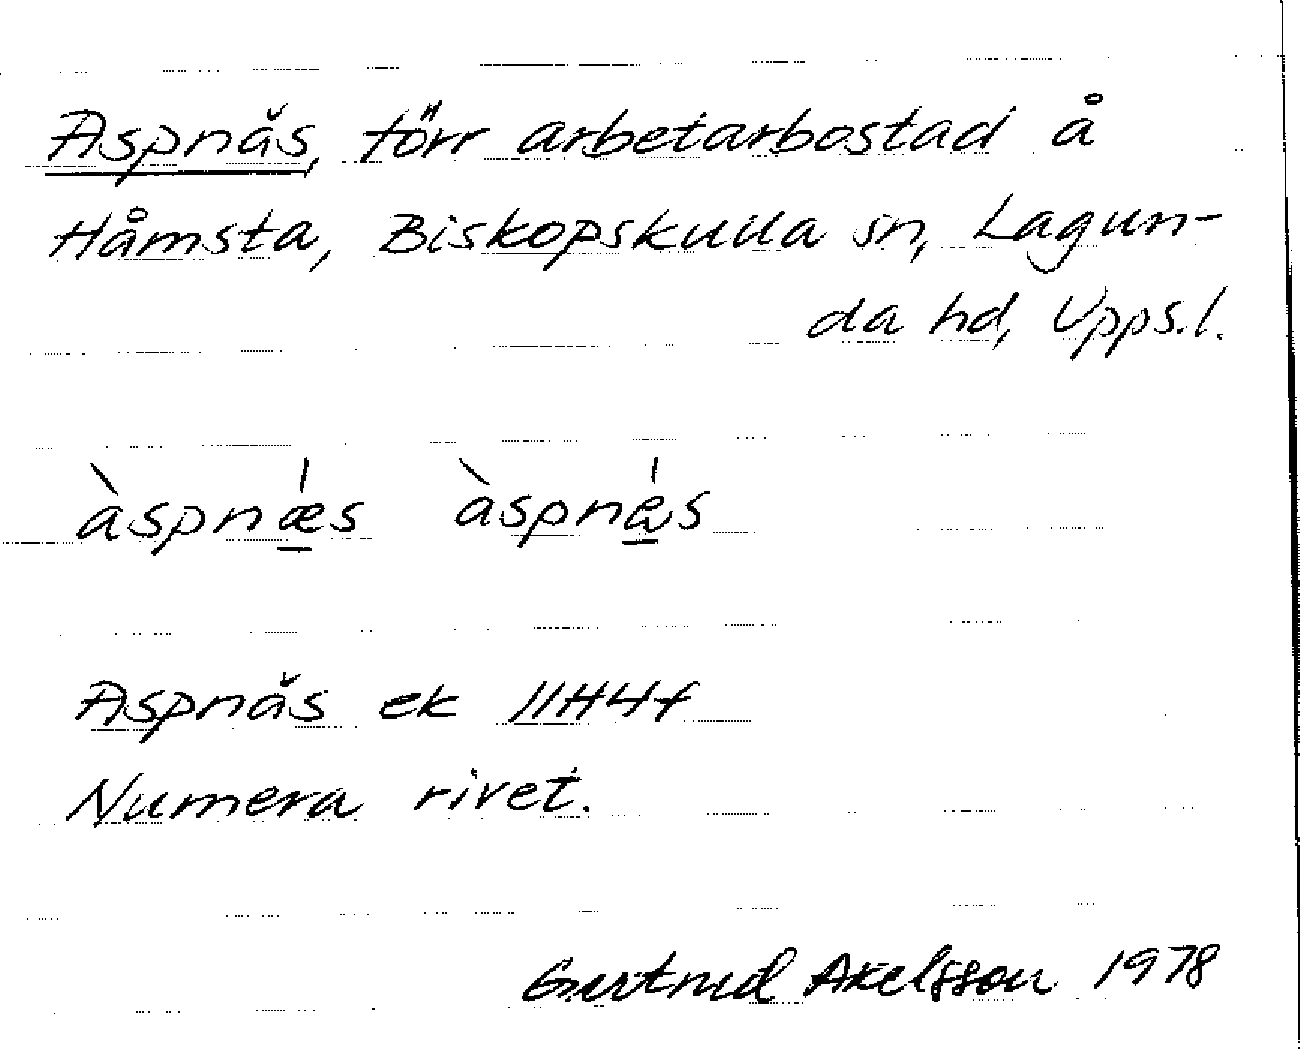 Aspnäs, förr arbetarbostad å
Håmsta, Biskopskulla sn, Lagun-
da hd, Upps.l.
àspnǽs àspnés
Aspnäs ek 11H4f
Numera rivet.
Gertrud Axelsson 1978